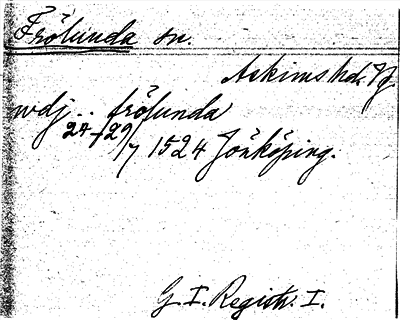 Frölunda sn.
Askims hd. Vg
wdj .. frölunda
24-29/7 1524 Jönköping.
G. I. Registr. I.